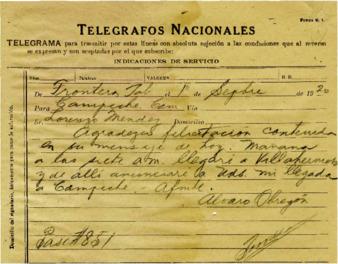 FORMA N. 1.
TELEGRAFOS NACIONALES
TELEGRAMA para transmitir por estas líneas con absoluta sujeción a las condiciones que al reverso
se expresan y son aceptadas por el que subscribe:
INDICACIONES DE SERVICIO
Núm. Palabras VALORES H. D.
De Frontera Tab el 1º Sepbre de 1920
Para Campeche, Cam Vía
Sr. Lorenzo Mendez Domicilio
Agradezco felicitacion contenida
en su mensaje de hoy. Mañana
a las siete a.m. llegaré a Villahermosa
y de alli anunciaré a Uds. mi llegada
a Campeche. - Afmte.
Alvaro Obregón
Pase # 851
Domicilio del signatario, únicamente para casos de aclaración.